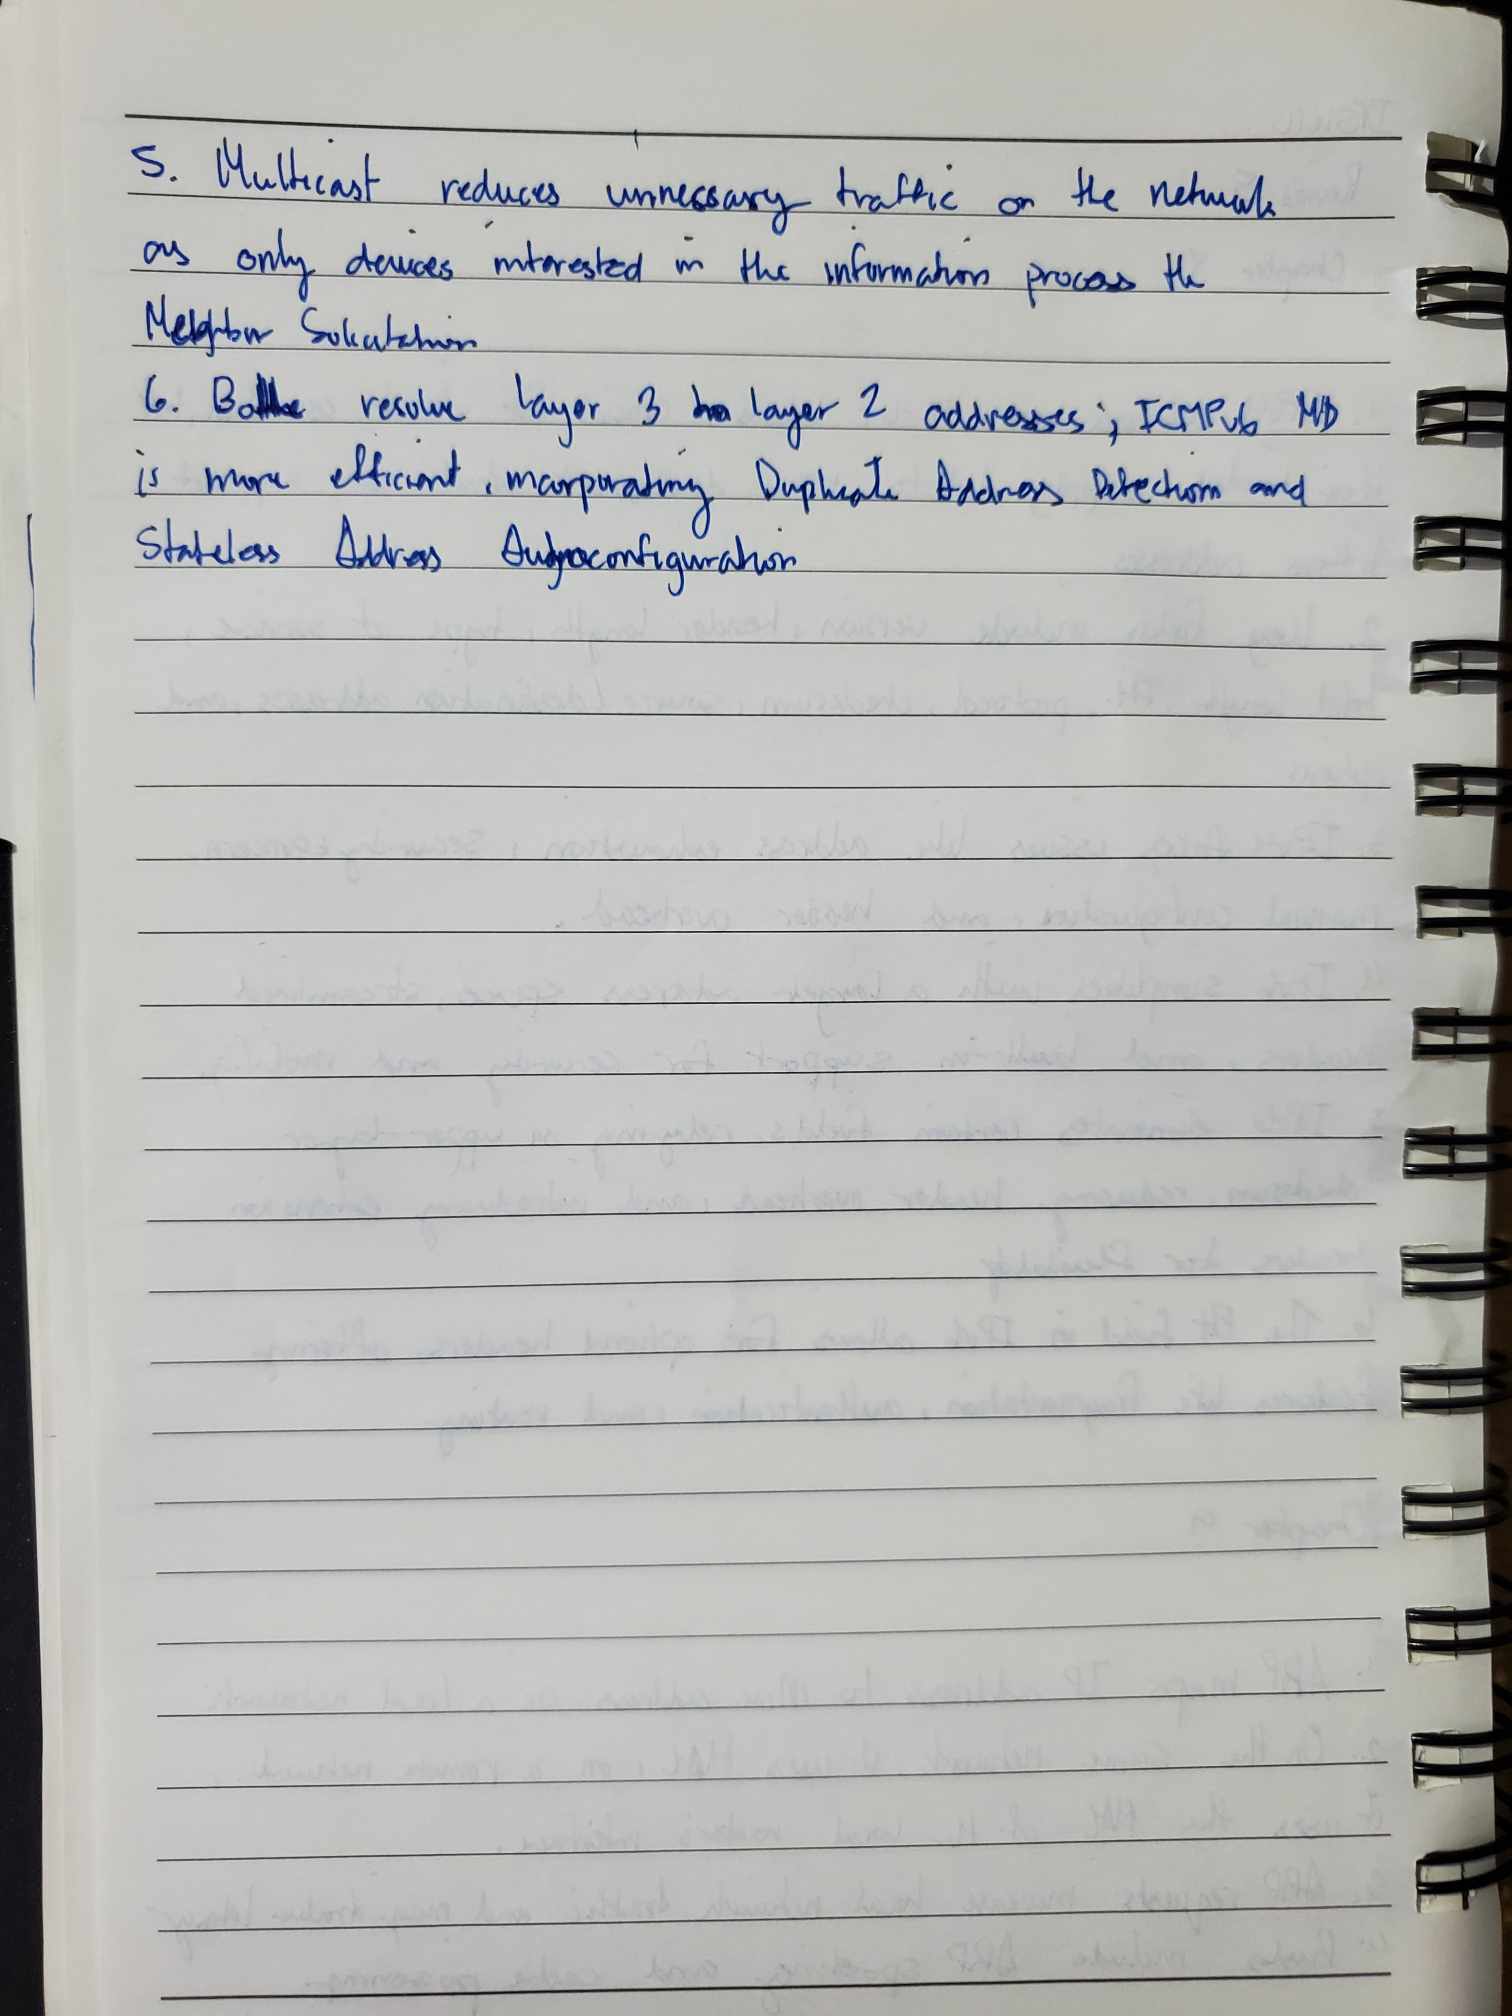 5. Multicast reduces unnessary traffic on the network
as only devices interested in the information process the
Neighbor Solicitation
6. Both resolve layer 3 to layer 2 addresses; ICMPv6 ND
is more efficient, incorporating Duplicate Address Detection and
Stateless Address Autoconfiguration